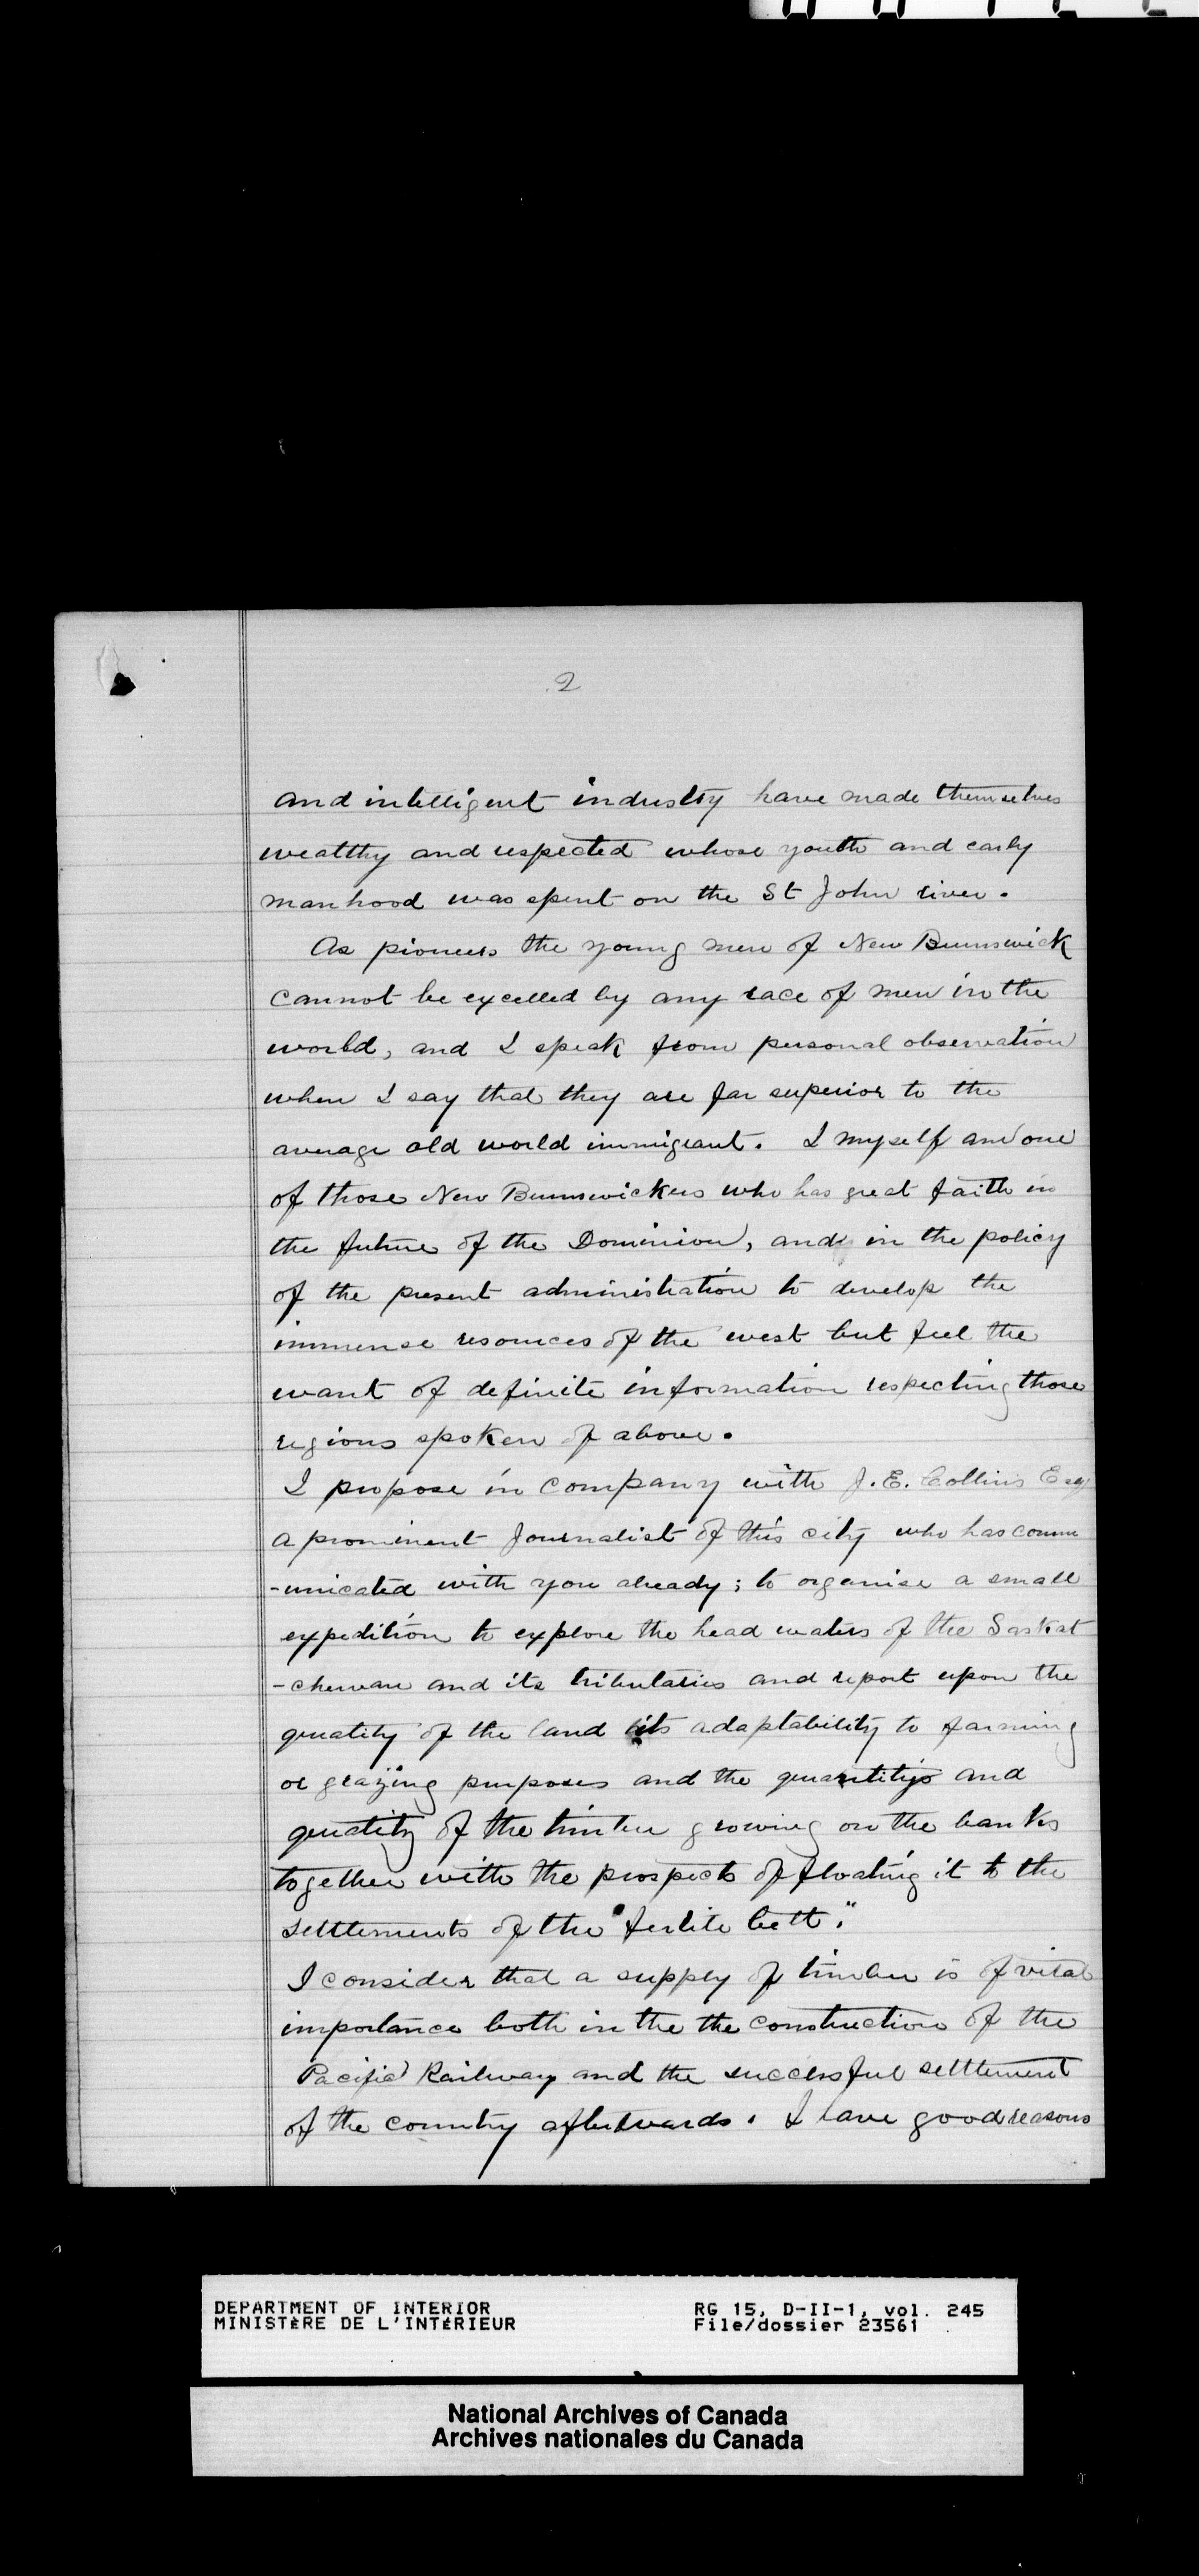 2
and intelligent industry have made themselves
wealthy and respected whose youth and early
manhood was spent on the St John river.
As pioneers the young men of New Brunswick
cannot be excelled by any race of men in the
world, and I speak from personal observation
when I say that they are far superior to the
average old world immigrant. I myself am one
of those New Brunswickers who has great faith in
the future of the Dominion, and in the policy
of the present administration to develop the
immense resources of the west but feel the
want of definite information respecting those
regions spoken of above.
I propose in company with J. E. Collins Esq
a prominent Journalist of this city who has comm
-unicated with you already; to organise a small
expedition to explore the head waters of the Saskat
-chewan and its tributaries and report upon the
quality of the land its adaptability to farming
or grazing purposes and the quantity and
quality of the timber growing on the banks
together with the prospects of floating it to the
settlements of the "fertile belt."
I consider that a supply of timber is of vital
importance both in the the construction of the
Pacific Railway and the successful settlement
of the country afterwards. I have good reasons
DEPARTMENT OF INTERIOR RG 15, D-II-1, vol. 245
MINISTÈRE DE L'INTÉRIEUR File/dossier 23561
National Archives of Canada
Archives nationales du Canada